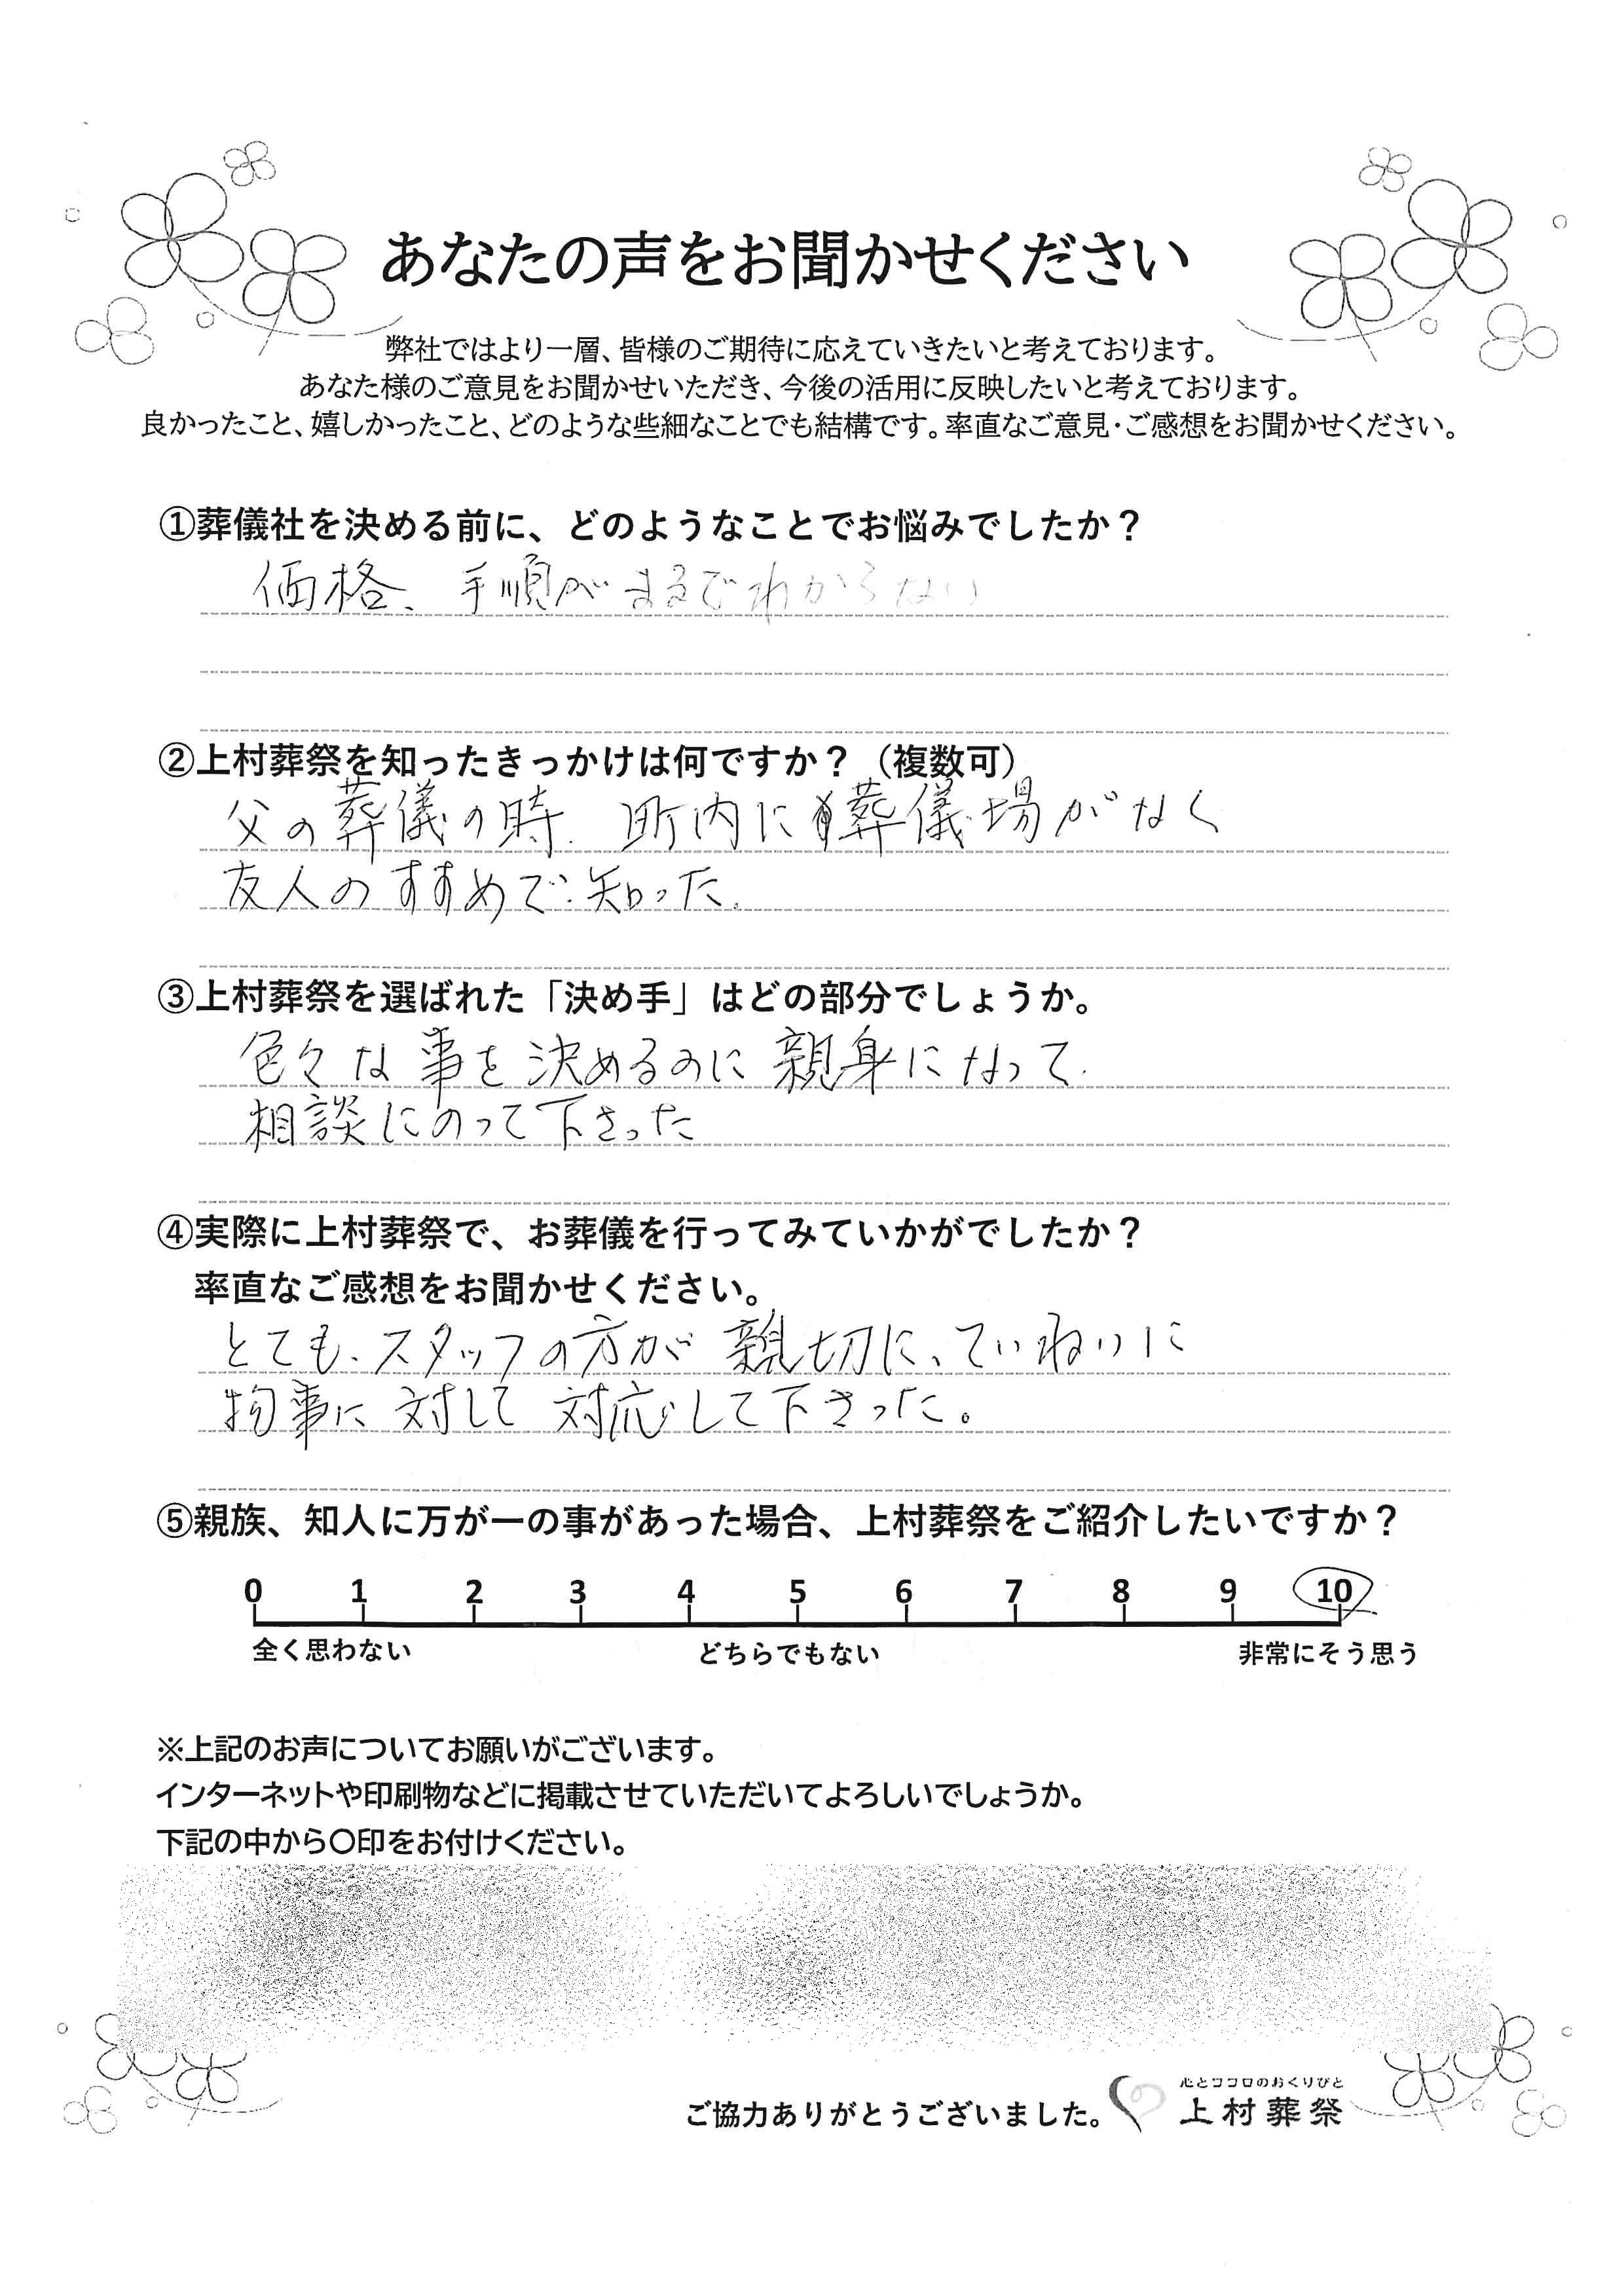 あなたの声をお聞かせください
弊社ではより一層、皆様のご期待に応えていきたいと考えております。
あなた様のご意見をお聞かせいただき、今後の活用に反映したいと考えております。
良かったこと、嬉しかったこと、どのような些細なことでも結構です。率直なご意見・ご感想をお聞かせください。
①葬儀社を決める前に、どのようなことでお悩みでしたか？
価格、手順がまるでわからない
②上村葬祭を知ったきっかけは何ですか？（複数可）
父の葬儀の時、町内に葬儀場がなく
友人のすすめで知った。
③上村葬祭を選ばれた「決め手」はどの部分でしょうか。
色々な事を決めるのに親身になって
相談にのって下さった
④実際に上村葬祭で、お葬儀を行ってみていかがでしたか？
率直なご感想をお聞かせください。
とても、スタッフの方が親切に、ていねいに
物事に対して対応して下さった。
⑤親族、知人に万が一の事があった場合、上村葬祭をご紹介したいですか？
0 1 2 3 4 5 6 7 8 9 10
全く思わない どちらでもない 非常にそう思う
※上記のお声についてお願いがございます。
インターネットや印刷物などに掲載させていただいてよろしいでしょうか。
下記の中から〇印をお付けください。
心とココロのおくりびと
ご協力ありがとうございました。 上村葬祭